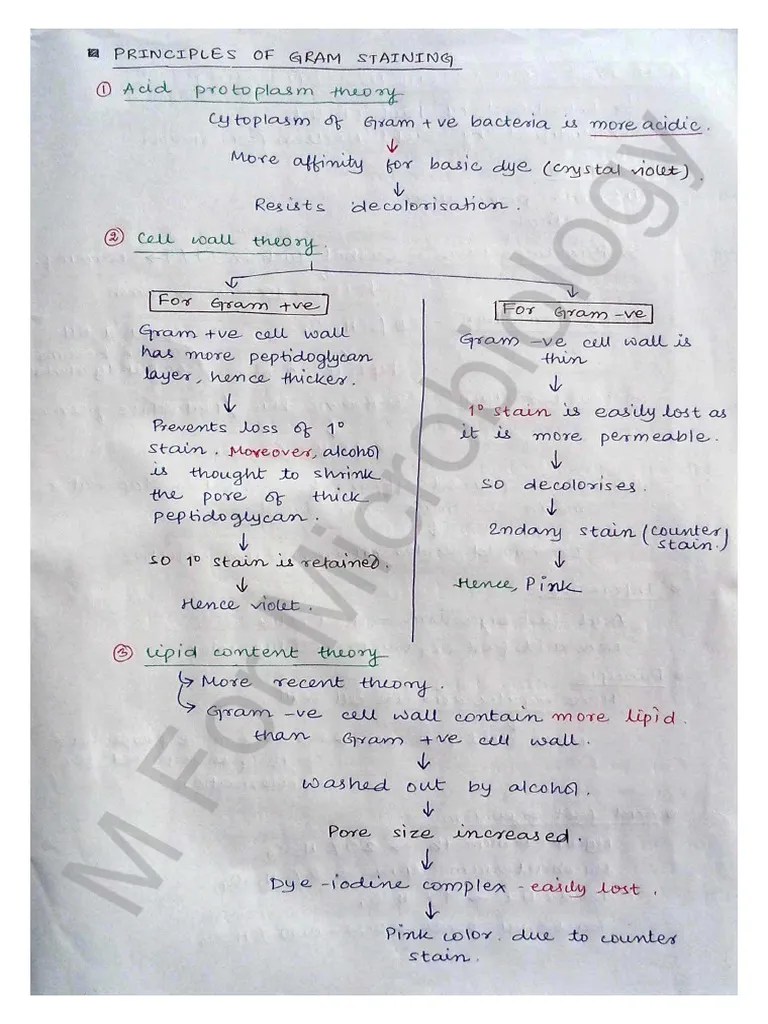 PRINCIPLES OF GRAM STAINING
① Acid protoplasm theory
Cytoplasm of Gram +ve bacteria is more acidic.
↓
More affinity for basic dye (crystal violet).
↓
Resists decolorisation.
② Cell wall theory.
For Gram +ve
Gram +ve cell wall
has more peptidoglycan
layer, hence thicker.
↓
Prevents loss of 1°
stain. Moreover, alcohol
is thought to shrink
the pore of thick
peptidoglycan.
↓
so 1° stain is retained.
↓
Hence violet.
For Gram -ve
Gram -ve cell wall is
thin
↓
1° stain is easily lost as
it is more permeable.
↓
so decolorises.
↓
2ndary stain (counter
stain.)
↓
Hence, Pink
③ Lipid content theory
↳ More recent theory.
↳ Gram -ve cell wall contain more lipid
than Gram +ve cell wall.
↓
Washed out by alcohol.
↓
Pore size increased.
↓
Dye-iodine complex - easily lost.
↓
Pink color. due to counter
stain.
M For Microbiology